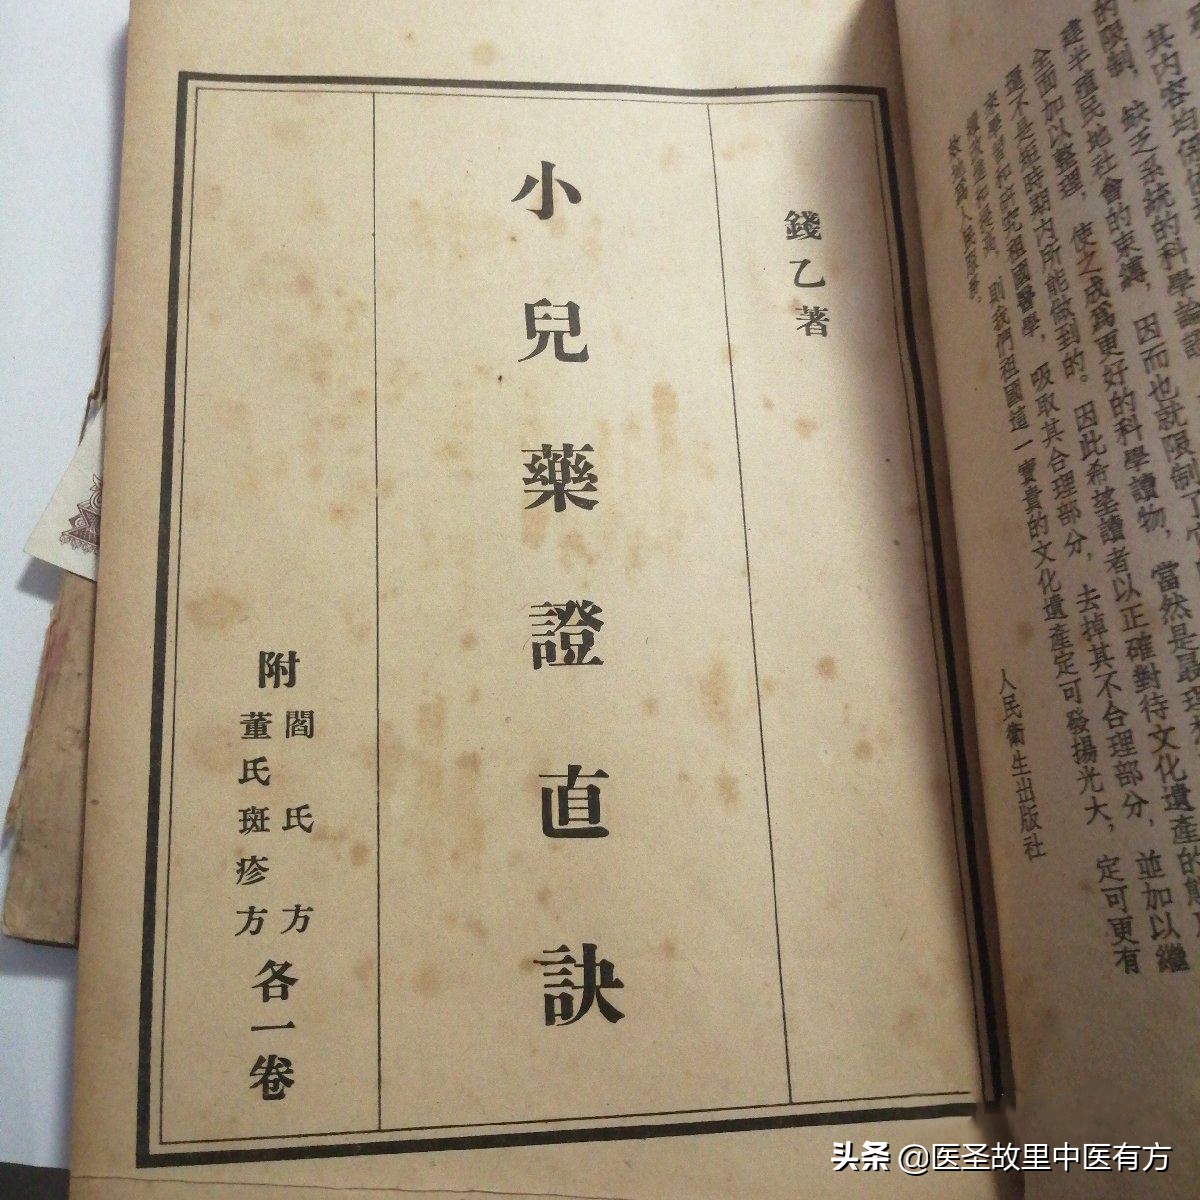 其內容均係
的限制，缺乏系統的科學論證
建半殖民地社會的束縛，因而也就限制了
全面加以整理，使之成爲更好的科學讀物，當然是最理
還不是短時期內所能做到的。因此希望讀者以正確對待文化遺產的態
來學習和研究祖國醫學，吸取其合理部分，去掉其不合理部分，並加以繼
則我們祖國這一寶貴的文化遺產定可發揚光大，定可更有
爲人民服務。
人民衛生出版社
錢乙著
小兒藥證直訣
附
閻氏方
董氏斑疹方
各一卷
头条 @医圣故里中医有方